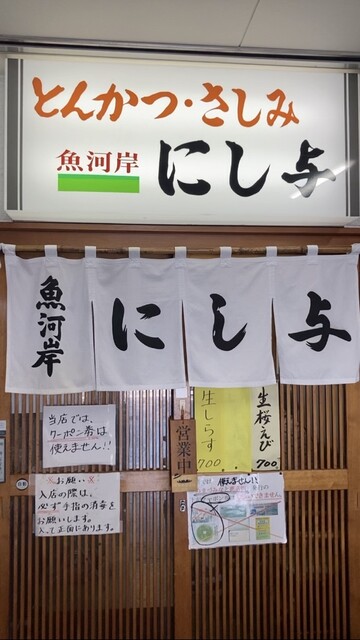 とんかつ・さしみ
魚河岸 にし与
魚河岸 にし与
当店では、
クーポン券は
使えません!!
営業中
生しらす
700
生桜えび
700
※お願い※
入店の際は、
必ず手指の消毒を
お願いします。
入って正面にあります。
使えません!!